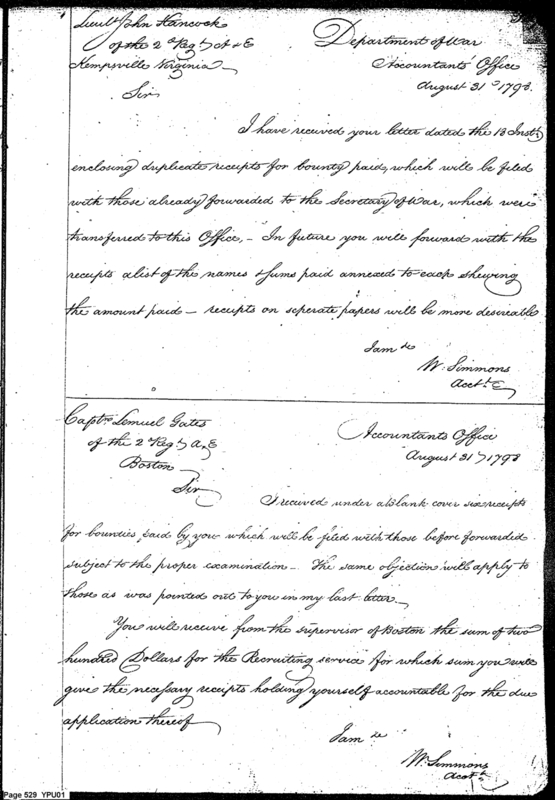 Lieut John Hancock
of the 2d Regt A & E
Kempsville Virginia
Sir
Department of War
Accountants Office
August 31st 1798.
I have received your letter dated the 13 Inst
enclosing duplicate receipts for bounty paid, which will be filed
with those already forwarded to the Secretary of War, which were
transferred to this Office, – In future you will forward with the
receipts a list of the names & sums paid annexed to each shewing
the amount paid – receipts on seperate papers will be more desireable
I am &c
W. Simmons
Acct
Captn Lemuel Gates
of the 2d Regt A, E
Boston
Sir
Accountants Office
August 31st 1798
I received under a Blank cover six receipts
for bounties paid by you which will be filed with those before forwarded
subject to the proper examination – The same objection will apply to
those as was pointed out to you in my last letter. –
You will receive from the supervisor of Boston the sum of two
hundred Dollars for the Recruiting service for which sum you will
give the necessary receipts holding yourself accountable for the due
application thereof
I am &c
W. Simmons
Acct
Page 529 YPU01